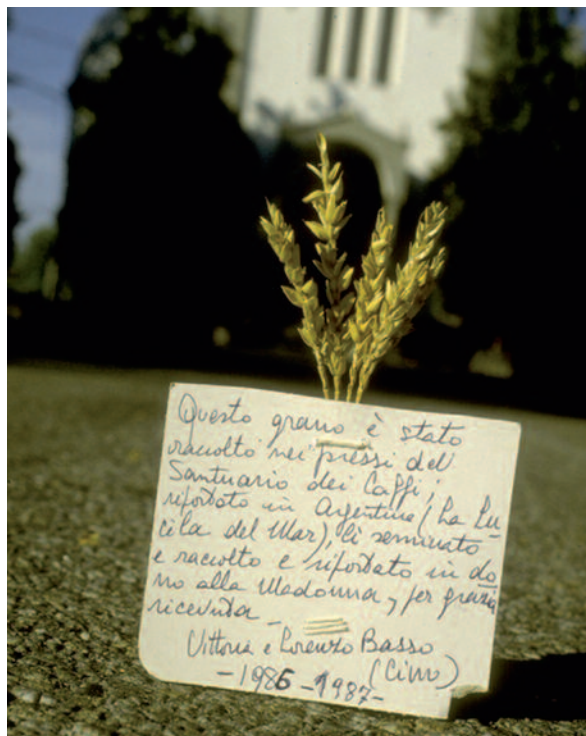 Questo grano è stato
raccolto nei pressi del
Santuario dei Caffi;
riportato in Argentina (La Lu-
cila del Mar), lì seminato
e raccolto e riportato in do
no alla Madonna, per grazia
ricevuta -
Vittoria e Lorenzo Basso
(Cimo)
- 1986 - 1987 -